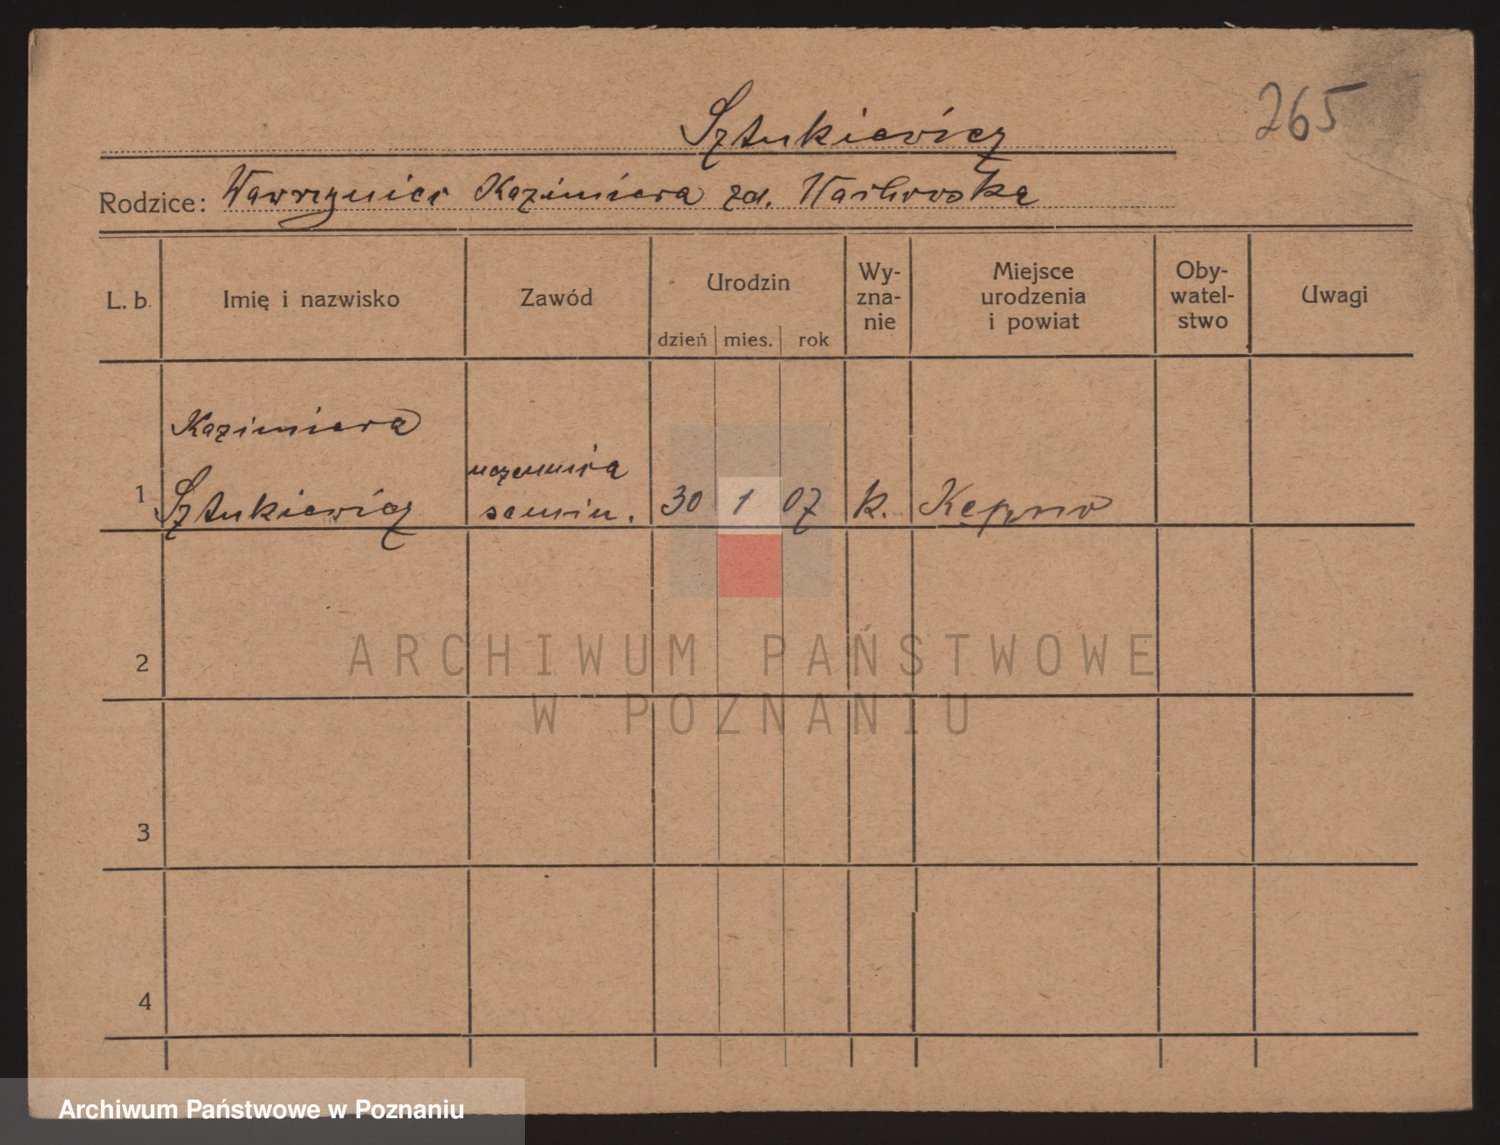 265
Sztukiewicz
Rodzice: Wawrzyniec Kazimiera zd.
L. b. Imię i nazwisko Zawód Urodzin Wy-zna-nie Miejsce urodzenia i powiat Oby-watel-stwo Uwagi
dzień mies. rok
Kazimiera
uczennica
1 Sztukiewicz semin. 30 1 07 k. Kępno
2
3
4
ARCHIWUM PAŃSTWOWE
W POZNANIU
Archiwum Państwowe w Poznaniu